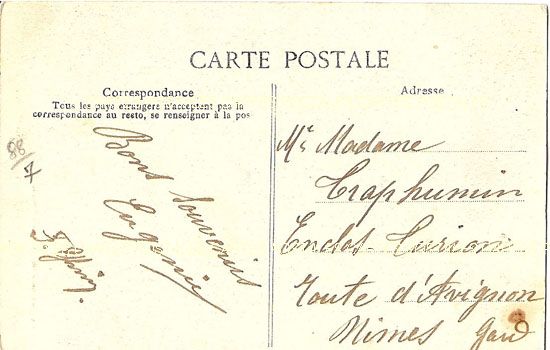 CARTE POSTALE
Correspondance
Tous les pays étrangers n'acceptent pas la
correspondance au resto, se renseigner à la pos
Bons Souvenirs
Eugénie
88
7
Adresse
Me Madame
Craphumin
Enclos Curion
Route d'Avignon
Nimes Gard